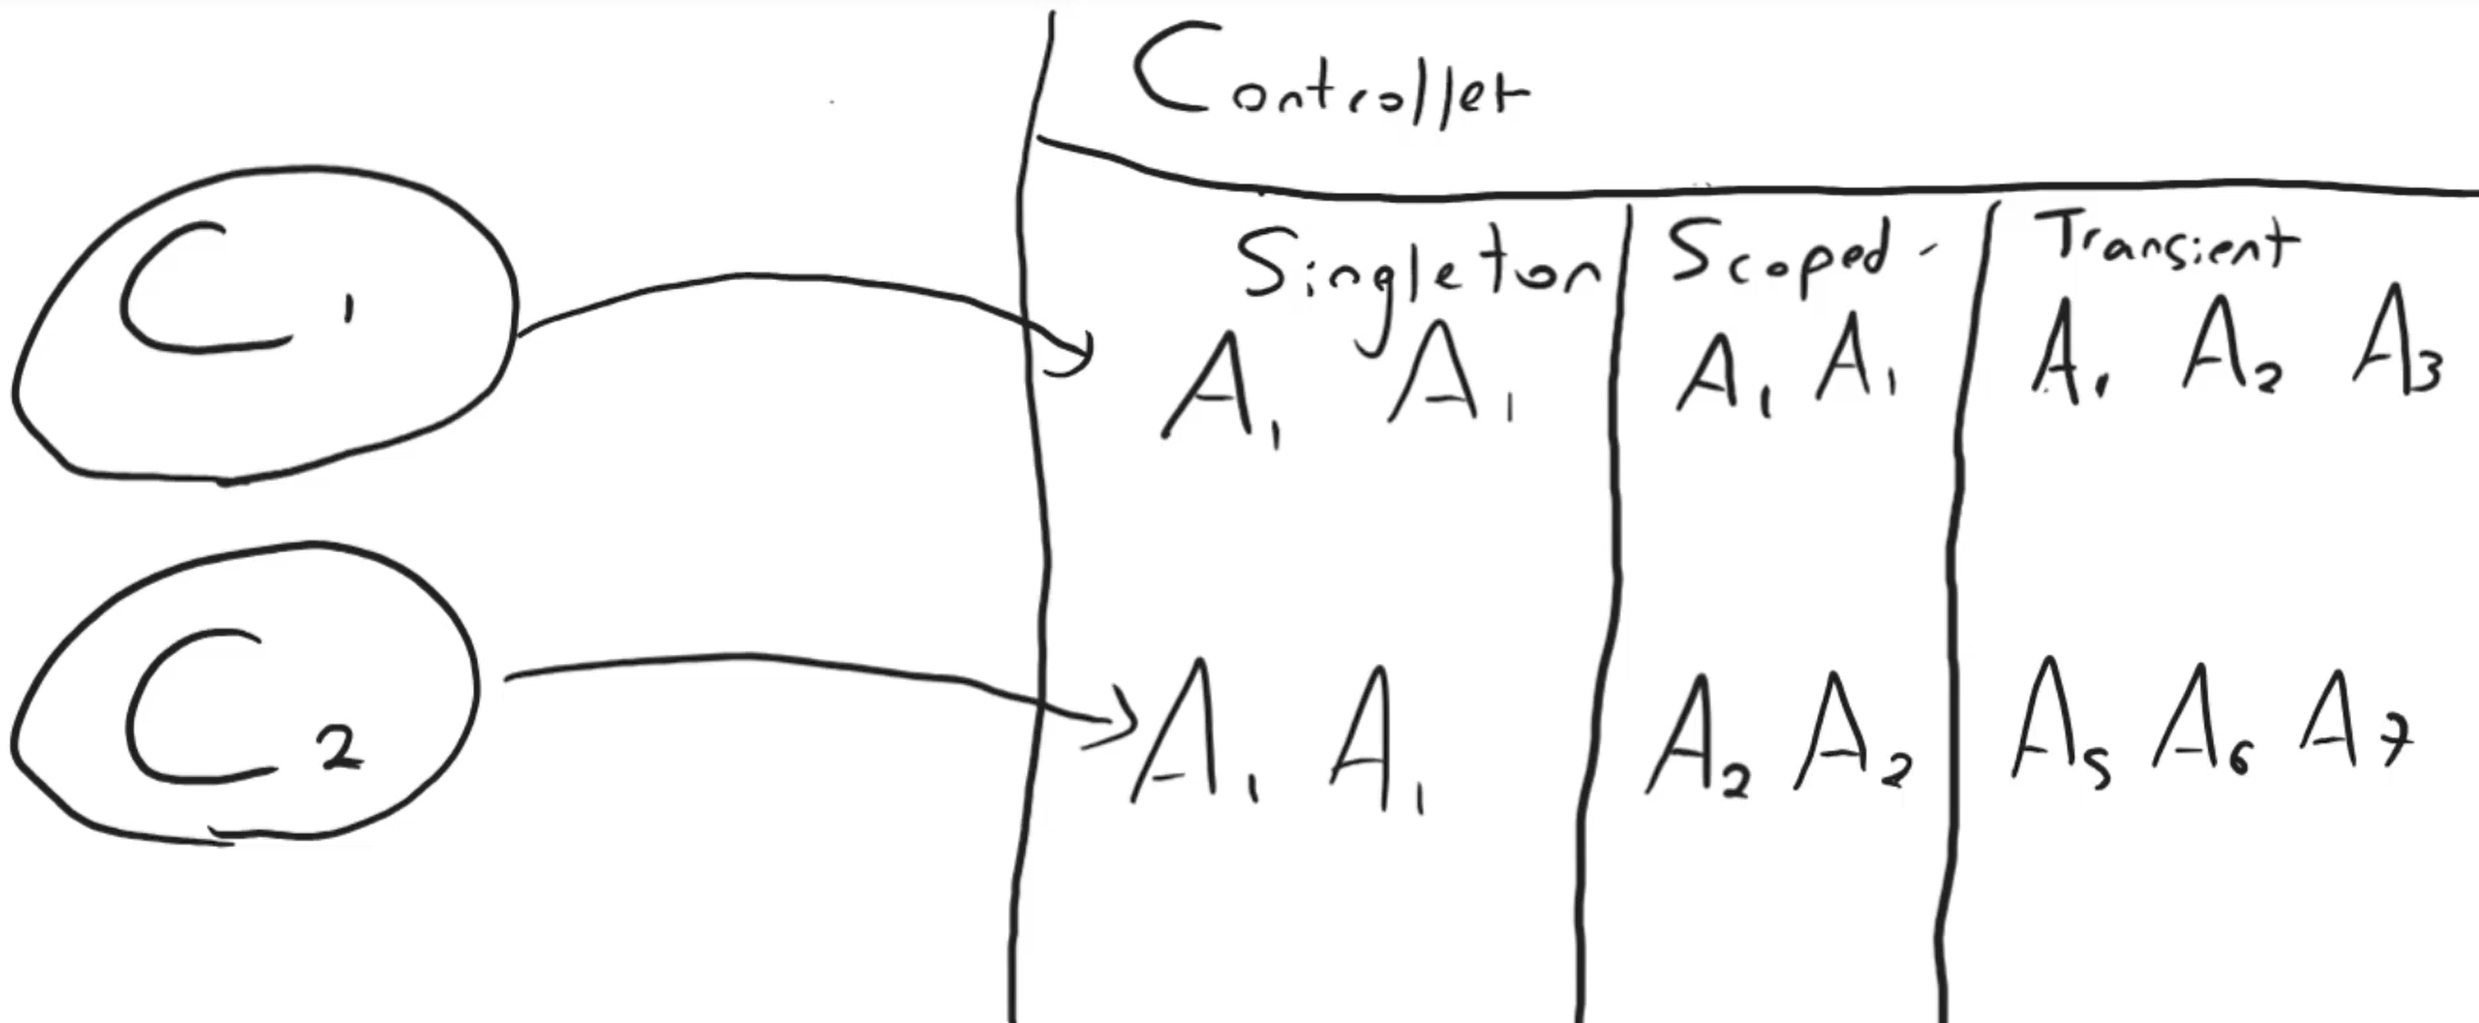 Controller
Singleton Scoped - Transient
C1 A1 A1 A1 A1 A1 A2 A3
C2 A1 A1 A2 A2 A5 A6 A7